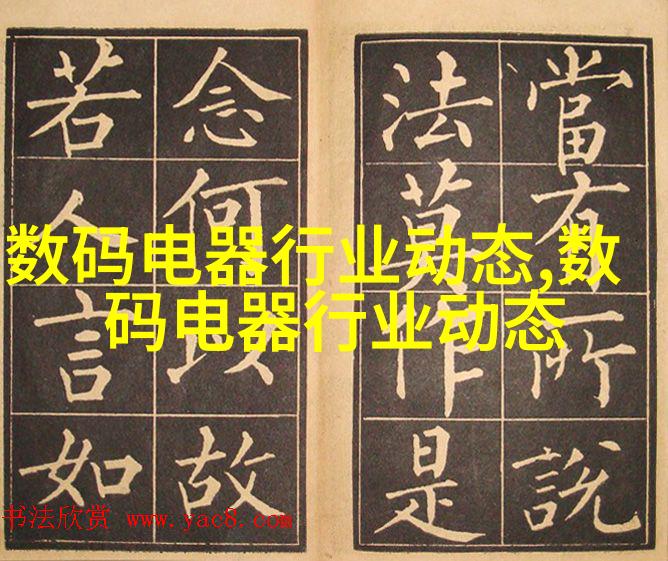 當有所說
法莫作是
念何以故
若人言如
数码电器行业动态,数
码电器行业动态
书法欣赏 www.yac8.com